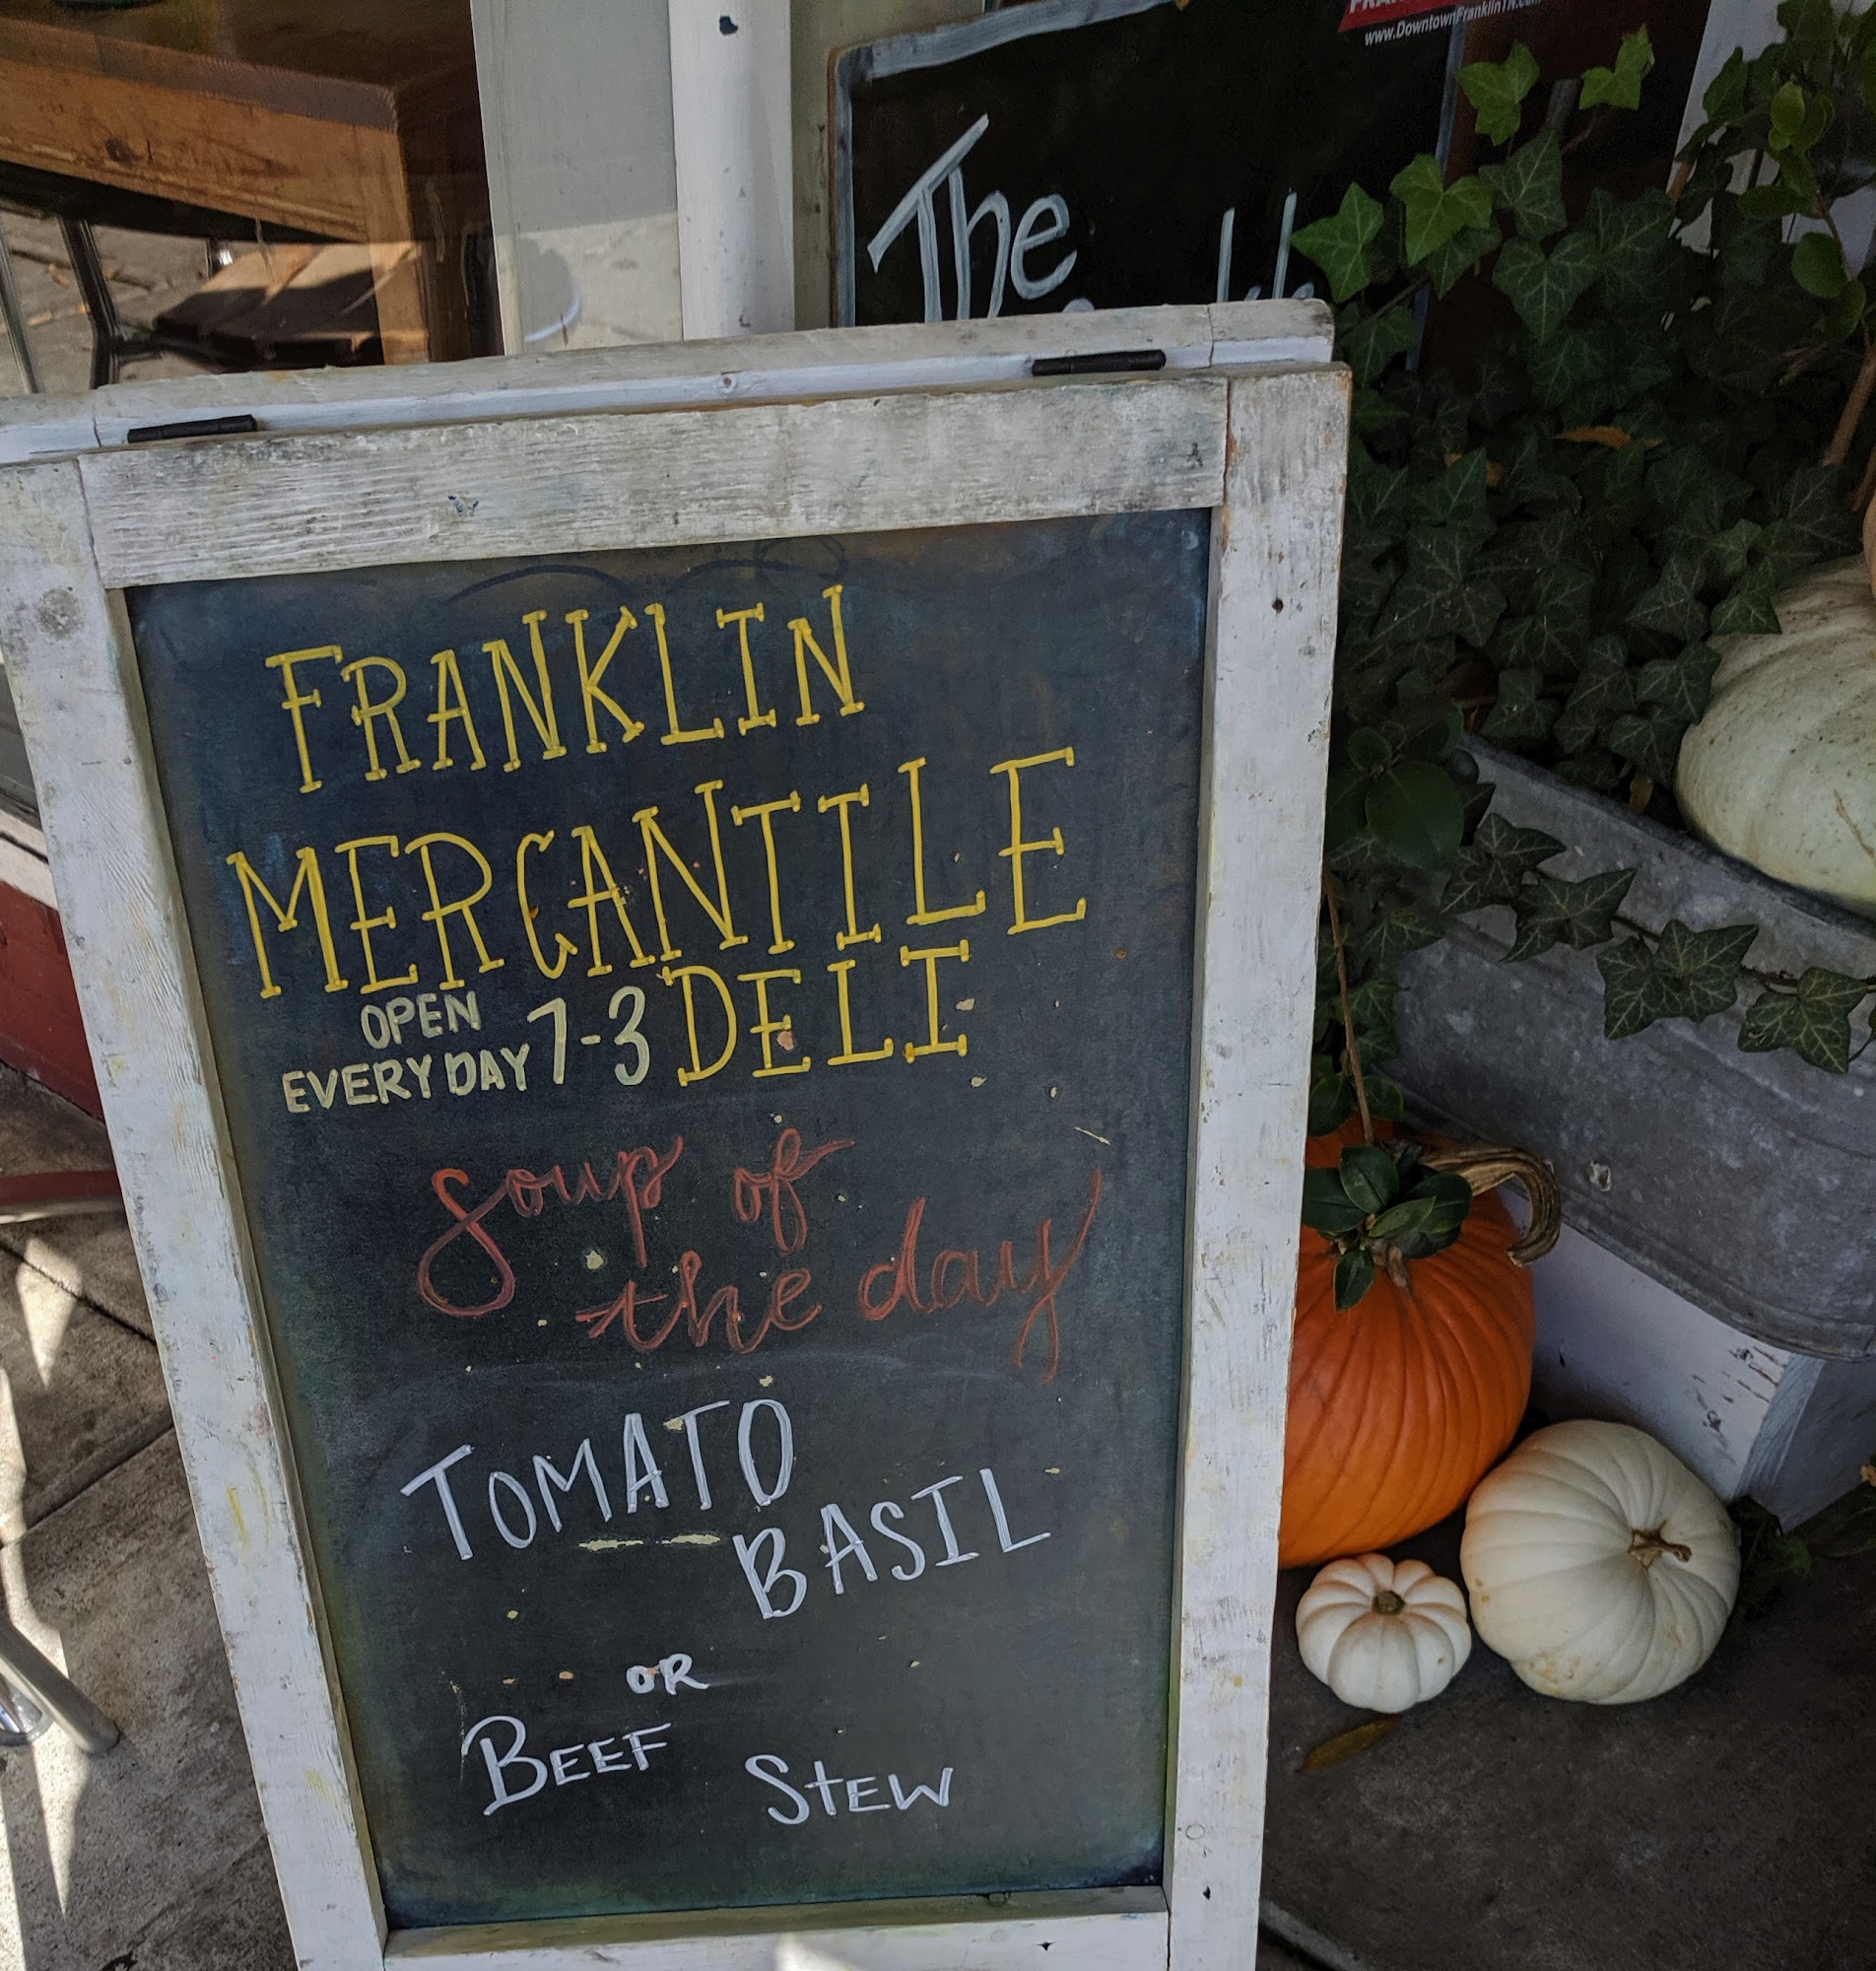 www.DowntownFranklinTN.com
The
FRANKLIN
MERCANTILE
DELI
OPEN
EVERY DAY 7-3
soup of
the day
TOMATO
BASIL
OR
BEEF
STEW